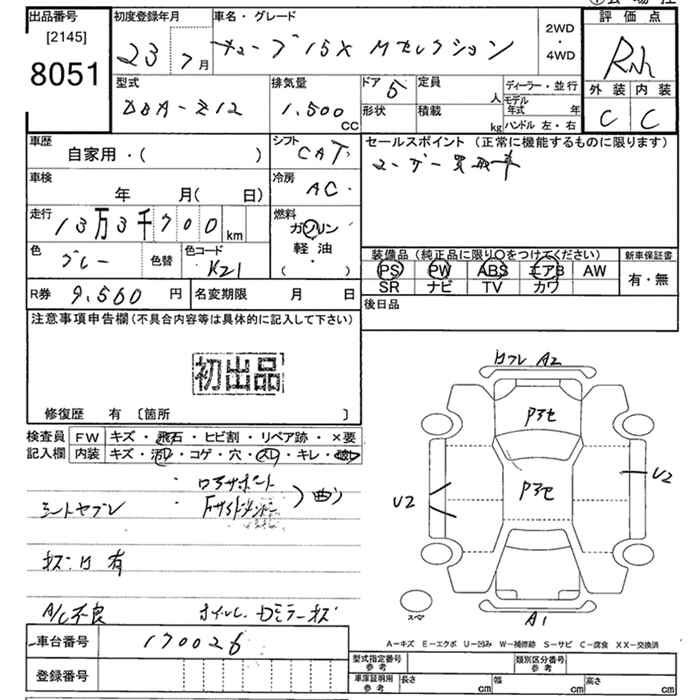 出品番号
[2145]
8051
初度登録年月
23 7月
車名・グレード
キューブ 15X Mセレクション
2WD
・
4WD
評価点
外装 内装
C C
型式
DBA-Z12
排気量
1.500 CC
ドア 5
定員 人
形状
積載 kg
ディーラー・並行
モデル年式 年
ハンドル 左・右
車歴
自家用・( )
シフト
CAT
セールスポイント(正常に機能するものに限ります)
ユーザー買取車
車検
年 月( 日)
冷房
AC
走行
13万3千700 km
燃料
ガソリン
軽油
( ・ )
色
グレー
色替
色コード
K21
装備品(純正品に限り○をつけてください)
PS PW ABS エアB AW
SR ナビ TV カワ
新車保証書
有・無
R券 9.560 円
名変期限 月 日
後日品
注意事項申告欄(不具合内容等は具体的に記入して下さい)
初出品
修復歴 有 〔箇所 〕
検査員記入欄
FW キズ・飛石・ヒビ割・リペア跡・×要
内装 キズ・汚レ・コゲ・穴・スレ・キレ
シートヤブレ
曲り
有
A/C不良
車台番号 170026
登録番号
A2
Pアセ
Pアセ
U2
U2
A1
スペア
A-キズ E-エクボ U-凹み W-補修跡 S-サビ C-腐食 XX-交換済
型式指定番号 参考
類別区分番号 参考
車庫証明用 参考
長さ cm 幅 cm 高さ cm